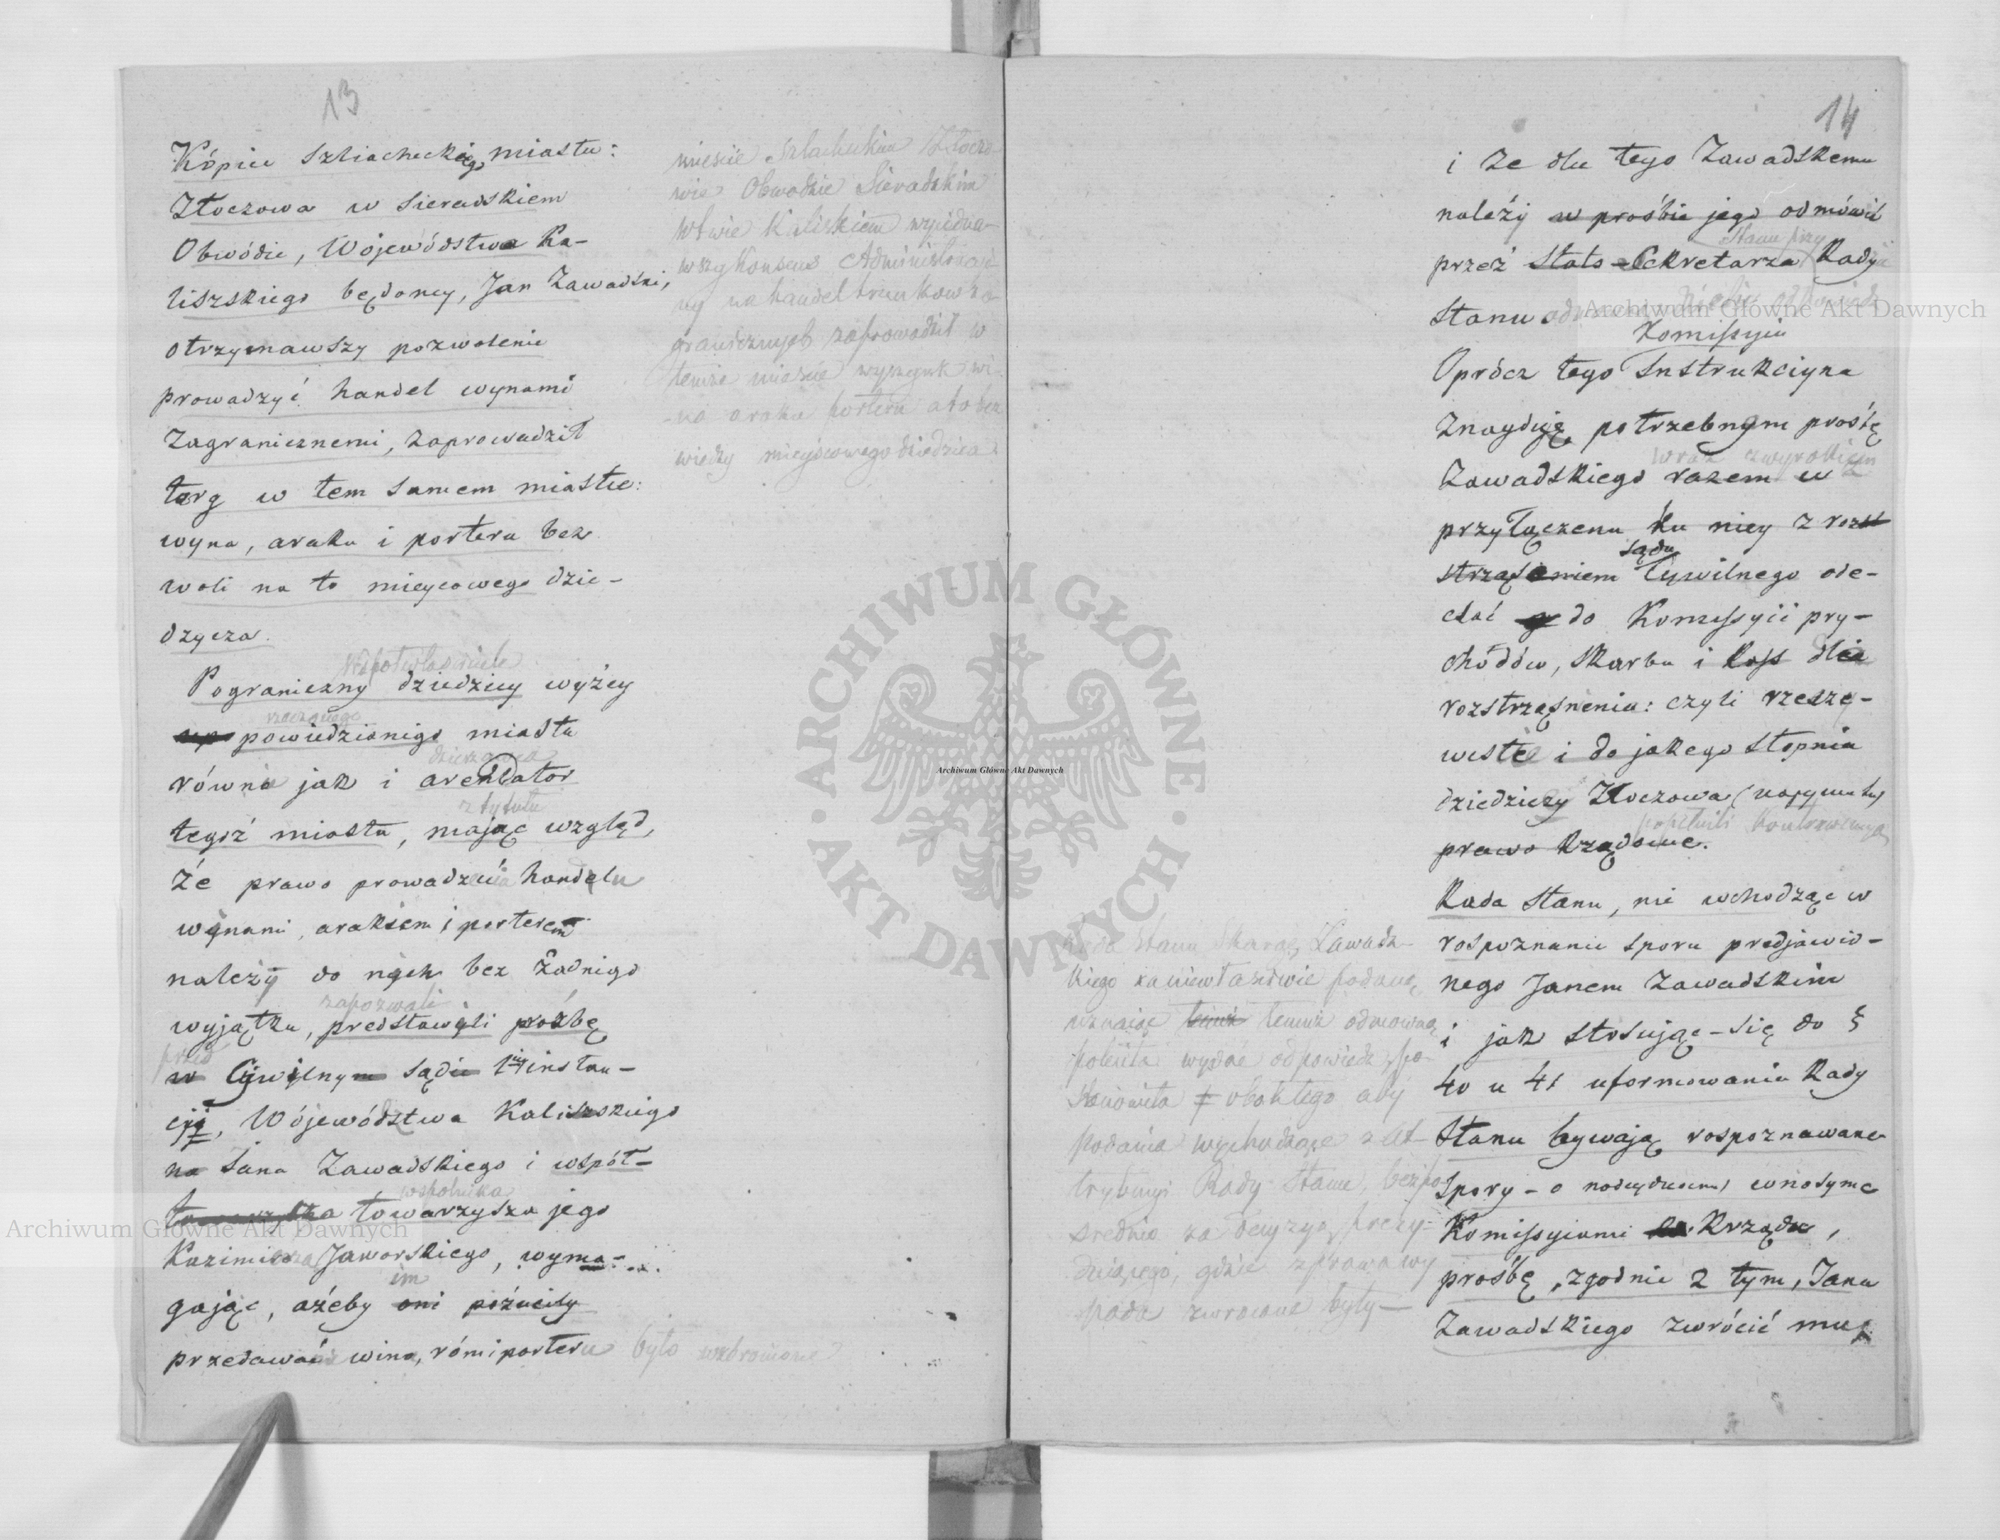 13
Kópiec szliacheckiego miasta:
Złoczowa w Sieradskiem
Obwódie, Wojewódstwa Ka-
liszskiego będoncy, Jan Zawadski,
otrzymawszy pozwolenie
prowadzyć handel wynami
zagranicznemi, zaprowadził
targ w tem samem miastie:
wyna, araku i porteru bez
woli na to mieycowego dzie-
dzycza.
Pograniczny dziedzicy wyżey
rzeczonego
powiedzianigo miasta
dzierżawca
równie jak i arendator
z tytułu
tegoż miasta, mając wzgląd,
że prawo prowadzenia handelu
wynami, arakiem i porterem
należy do nych bez żadnigo
zapozwali
wyjątku, predstawyli prośbę
przed
w Cywilnym sądie 1 instan-
cji, Wójewództwa Kaliszskiego
na Jana Zawadskiego i współ-
wspólnika
towarzysza jego
Kazimierza Jaworskiego, wyma-
im
gając, ażeby oni poźucily
przedawać wina, róm i porteru było wzbronione
mieście Szlacheckim Złoczo-
wie Obwodzie Sieradzkim
Wtwie Kaliskiem wyjedna-
wszy Konsens Administracyi-
ny na handel trunków za-
granicznych zaprowadził w
temże mieście wyszynk wi-
-na araku porteru a to bez
wiedzy mieyscowego dziedzica
14
i że dla tego Zawadskemu
należy w prośbie jego odmówić
Stanu przy
przeź Stats-Sekretarza Rady
Stanu
Komissyia
Oprócz tego Instrukciyna
znayduję potrzebnym prośbę
wraz z wyrokiem
Zawadskiego razem w
przyłączenu ku niey z rozst
sądu
strząseniem Cywilnego ode-
słać do Komissyii pry-
chódów, skarbu i dla
rozstrząsnenia: czyli rzeszy-
wistie i do jakego stopnia
dziedziczy Złoczowa
popełnili kontrawencyą
prawo Rządowe.
Rada Stanu, nie wchodząc w
rospoznanie sporu predjawio-
nego Janem Zawadskim
i jak stosując-się do §
40 u 41 uformowania Rady
Stanu bywają rospoznawane
spory - o wnosyme
Komissyiami Rządu,
prośbę, zgodnie z tym, Jana
Zawadskiego zwrócić mu
Rada Stanu Skargę Zawadz-
kiego za niewłaściwie podaną
uznaiąc temuż odmowną
poleciła wydać odpowiedz, spo-
stanowiła obok tego aby
podania wychodzące z at-
trybucyi Rady Stanu, bezpo
srednio za decyzyą prezy-
duiącego, gdzie z prawa wy
pada zwrocone były —
Archiwum Główne Akt Dawnych
Archiwum Główne Akt Dawnych
Archiwum Główne Akt Dawnych
ARCHIWUM GŁÓWNE
AKT DAWNYCH